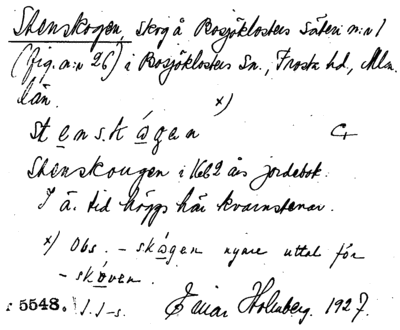 Stenskogen, skog å Bosjöklosters säteri n:r 1
(fig. n:r 26) i Bosjöklosters Sn., Frosta hd, Mlm.
län. x)
stenskågen
Stenskougen i 1662 års jordebok.
I ä. tid höggs här kvarnstenar.
x) Obs. -skågen nyare uttal för
-skoven.
5548. I.J-s. Einar Holmberg. 1927.